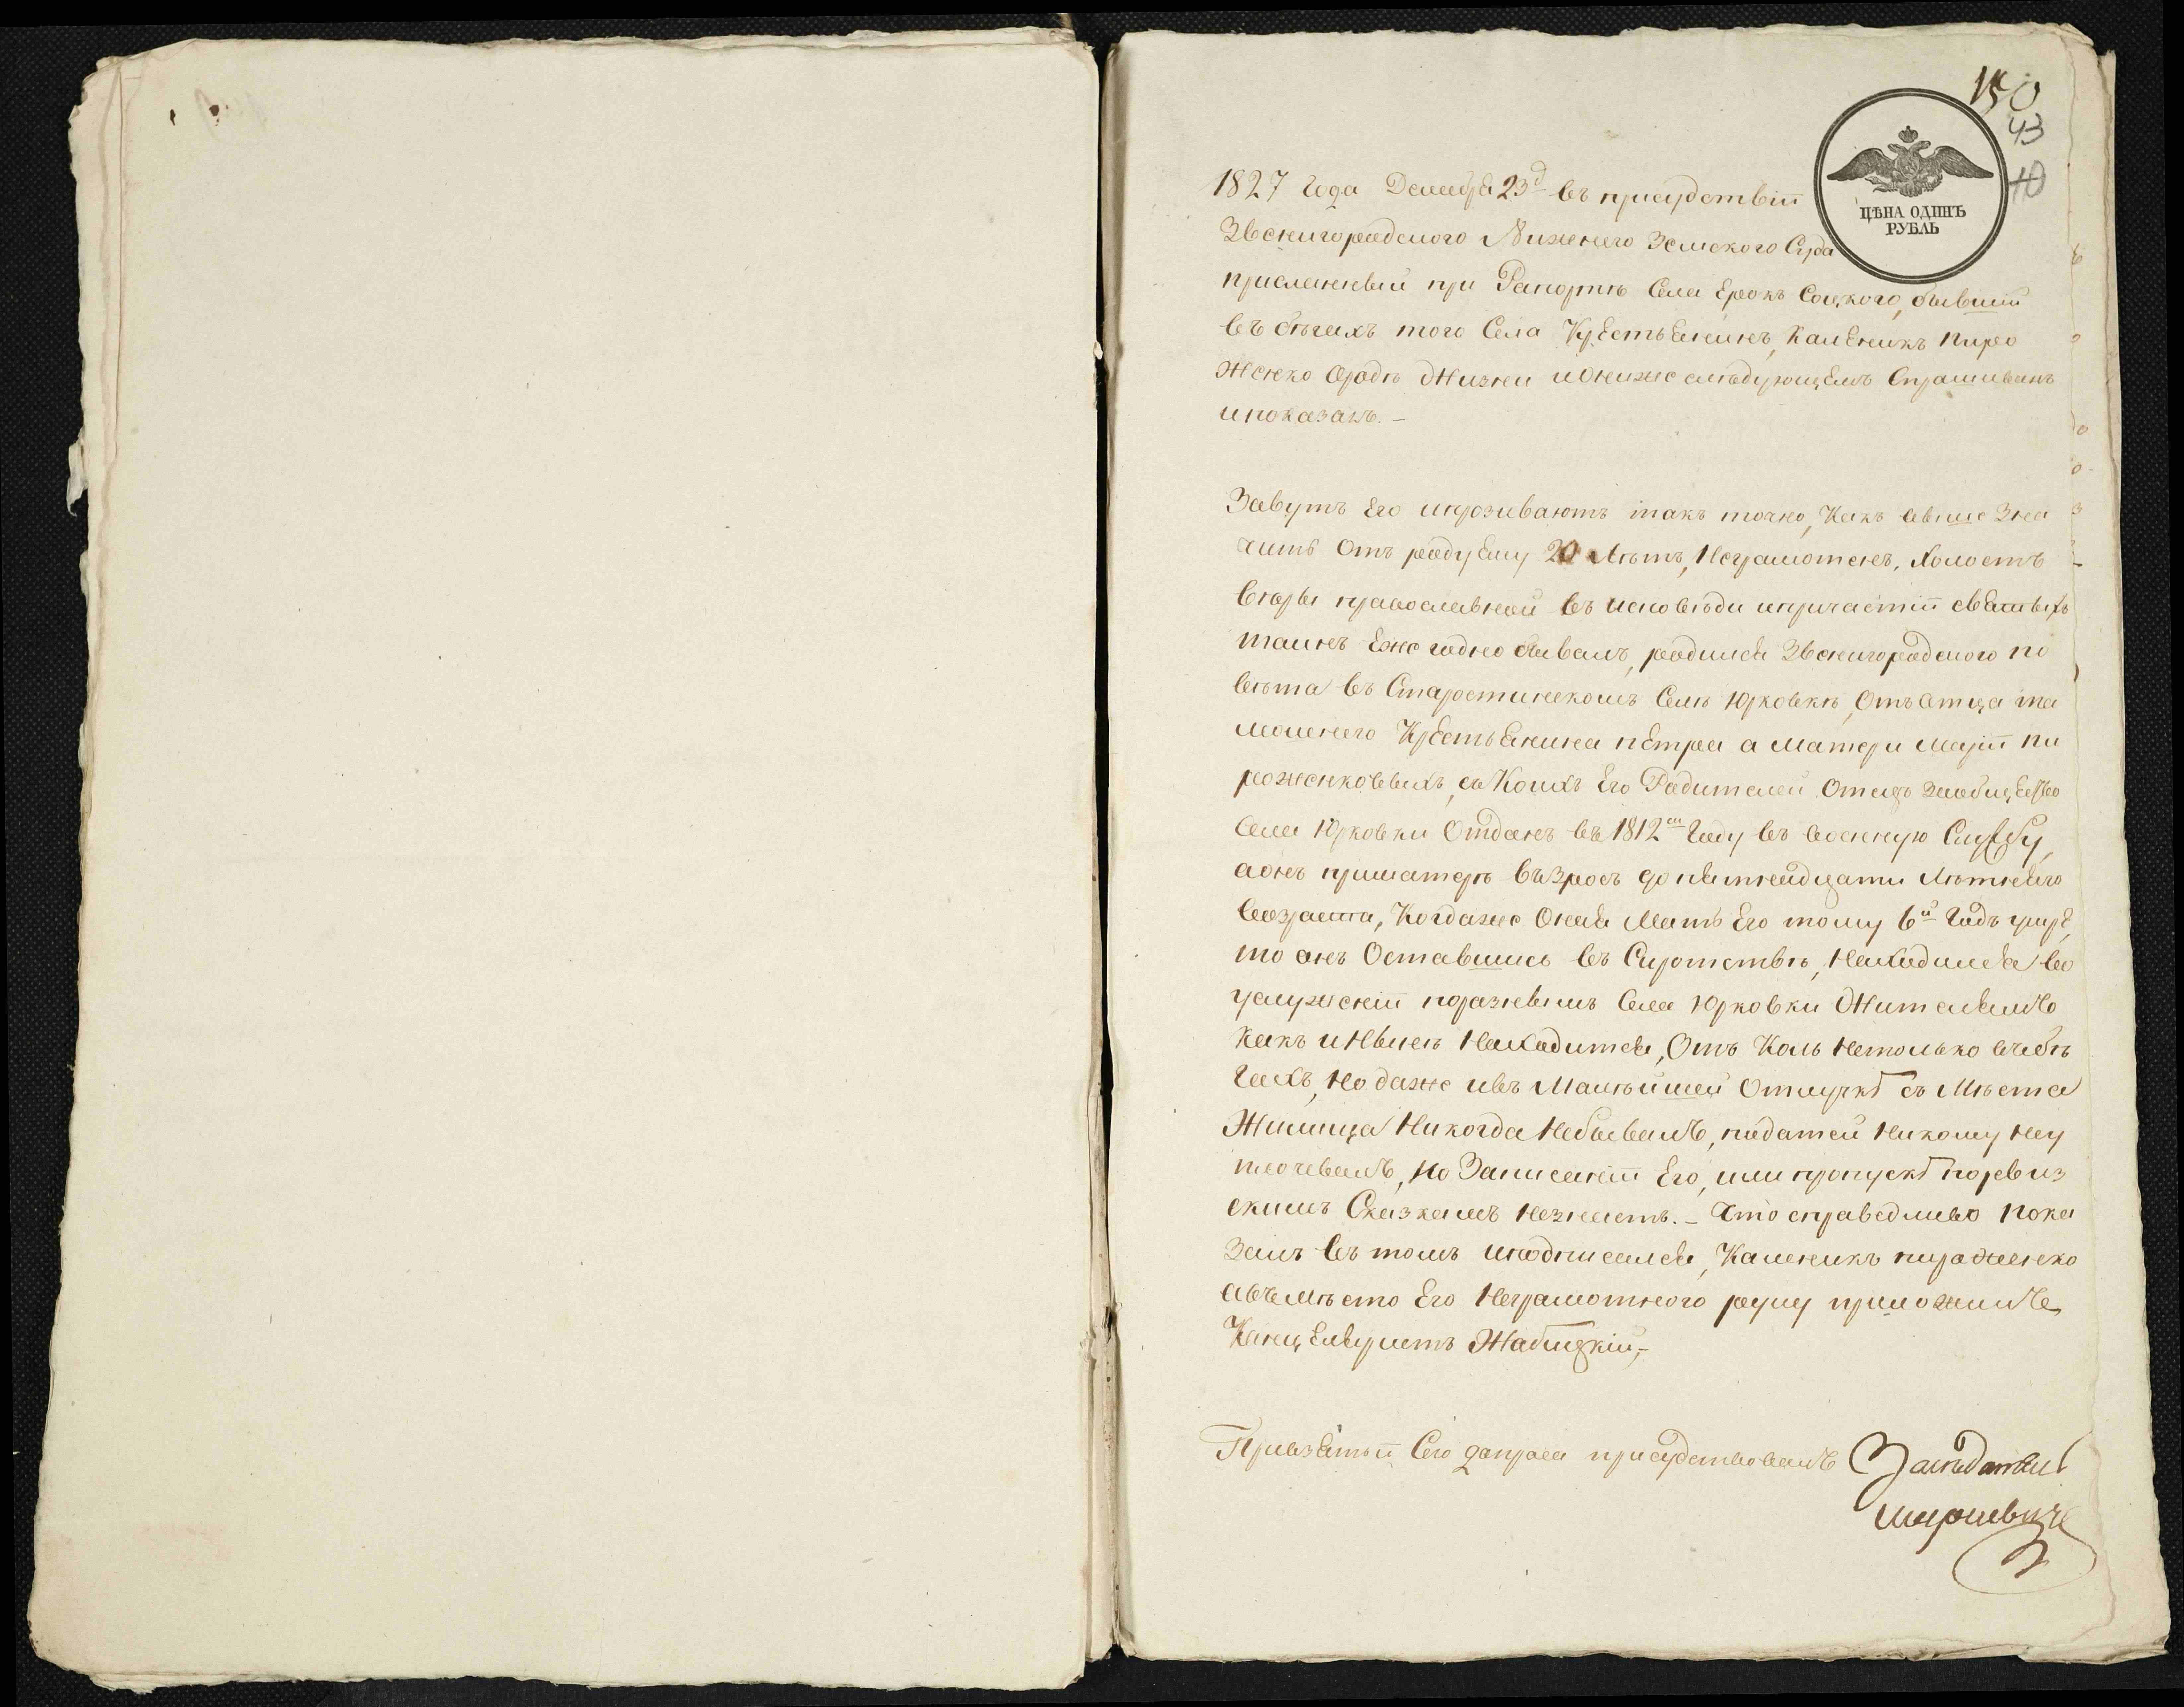 150
43
10
ЦѢНА ОДИНЪ
РУБЛЬ
1827 года Декабря 23д въ присудствіи
Звенигородского Нижнего Земского Суда
присланный при Рапортѣ Села Ерокъ Соцкого, бывшій
въ бѣгахъ того Села Крестьянинъ, Каленикъ Пиро
женко Ородѣ Жизни и Онижеслѣдующемъ Спрашиванъ
ипоказалъ. –
Завутъ Его ипрозиваютъ такъ точно, Какъ авыше Зна
читъ Отъ роду Ему 20 Лѣтъ, Неграмотенъ, Холостъ
вѣры православной въ исповѣди ипричастіи святыхъ
таинъ Ежегодно бывалъ, родился Звенигородского по
вѣта въ Старостинскомъ Селѣ Юрковкѣ, Отъ Атца та
мошнего Крестьянина Петра а Матери Маріи Пи
роженковыхъ, съ Коихъ Его Родителей Отецъ
Села Юрковки Отданъ въ 1812м Году въ военную Службу,
аонъ приматерѣ възросъ до пятнайдцати Лѣтнего
Возраста, Когдаже Оная Мать Его тому 6й Годъ умре,
то онъ Оставшись въ Сиротствѣ, Находился во
услуженіи поразнымъ Села Юрковки Жителямъ
Какъ и Нынѣ Находится, Отъ Коль Нетолько въ бѣ
гахъ, Но даже ивъ Малѣйшей Отлучкѣ съ Мѣста
Жилища Никогда Небывалъ, податей Никому Неу
плочевалъ, Но Записаніи Его, или пропускѣ поревиз
скимъ Сказкамъ Незнаетъ. – Что справедливо Пока
залъ въ томъ иподписался, Каленикъ пироженко
авъмѣсто Его Неграмотного руку приложилъ
Канцеляристъ Жабицкій,–
Привзятіи Сего допроса присудствовалъ Засѣдатель